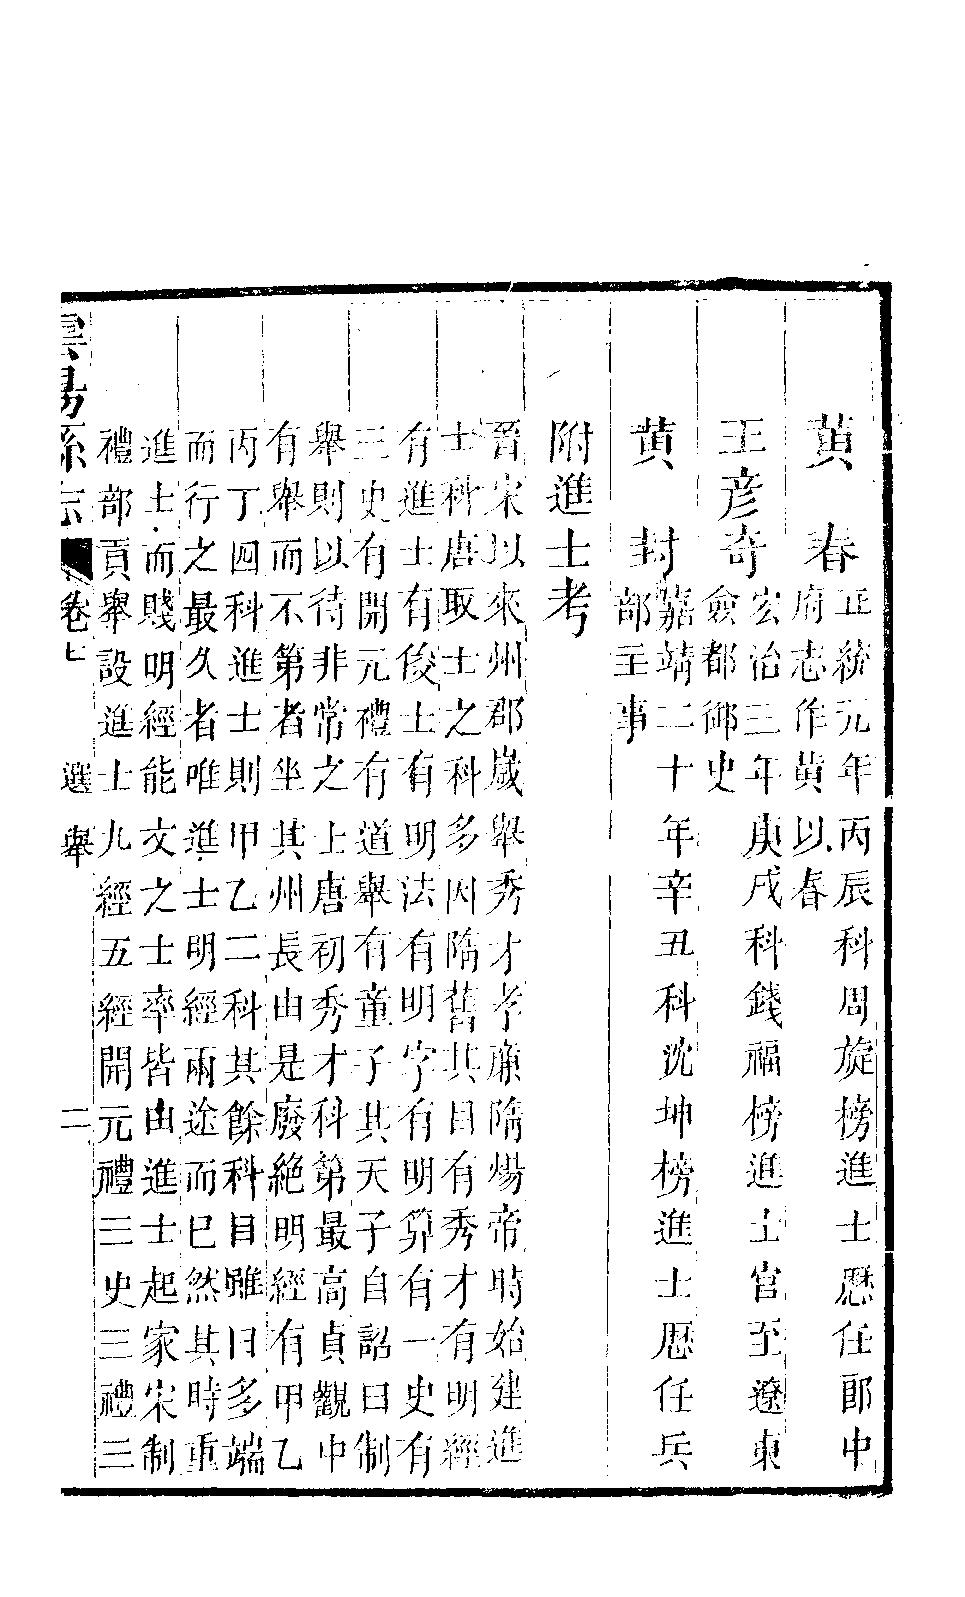 黄　春
正統元年丙辰科周旋榜進士歷任郎中
府志作黄以春
王彦奇
宏治三年庚戌科錢福榜進士官至遼東
僉都御史
黄　封
嘉靖二十年辛丑科沈坤榜進士歷任兵
部主事
附進士考
晉宋以來州郡嵗舉秀才孝廉隋煬帝時始建進
士科唐取士之科多因隋舊其目有秀才有明經
有進士有俊士有明法有明字有明算有一史有
三史有開元禮有道舉有童子其天子自詔曰制
舉則以待非常之士唐初秀才科第最高貞觀中
有舉而不第者坐其州長由是廢絶明經有甲乙
丙丁四科進士則甲乙二科其餘科目雖曰多端
而行之最久者唯進士明經兩途而已然其時重
進士而賤明經能文之士率皆由進士起家宋制
禮部貢舉設進士九經五經開元禮三史三禮三
雲陽縣志　卷七　選舉　二